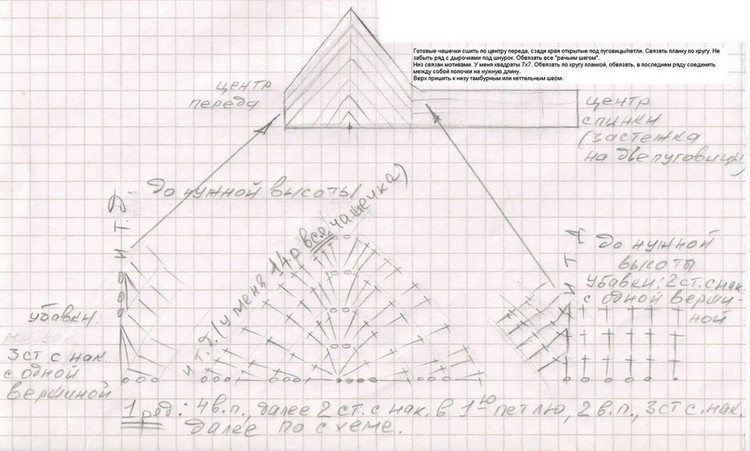 Готовые чашечки сшить по центру переда, сзади края открытые под пуговицы/петли. Связать планку по кругу. Не
забыть ряд с дырочками под шнурок. Обвязать все "рачьим шагом".
Низ связан мотивами. У меня квадраты 7х7. Обвязать по кругу планкой, обвязать, в последнем ряду соединить
между собой полочки на нужную длину.
Верх пришить к низу тамбурным или кеттельным швом.
центр
переда
центр
спинки
(застежка
на две пуговицы)
до нужной высоты
и т.д.
и т.д. (у меня 14р вся чашечка)
и т д
до нужной
высоты
убавки: 2 ст. с нак.
с одной верши-
ной
убавки:
3 ст с нак
с одной
вершиной
1 ряд: 4 в.п., далее 2 ст. с нак. в 1-ю петлю, 2 в.п., 3 ст с. нак.
далее по схеме.